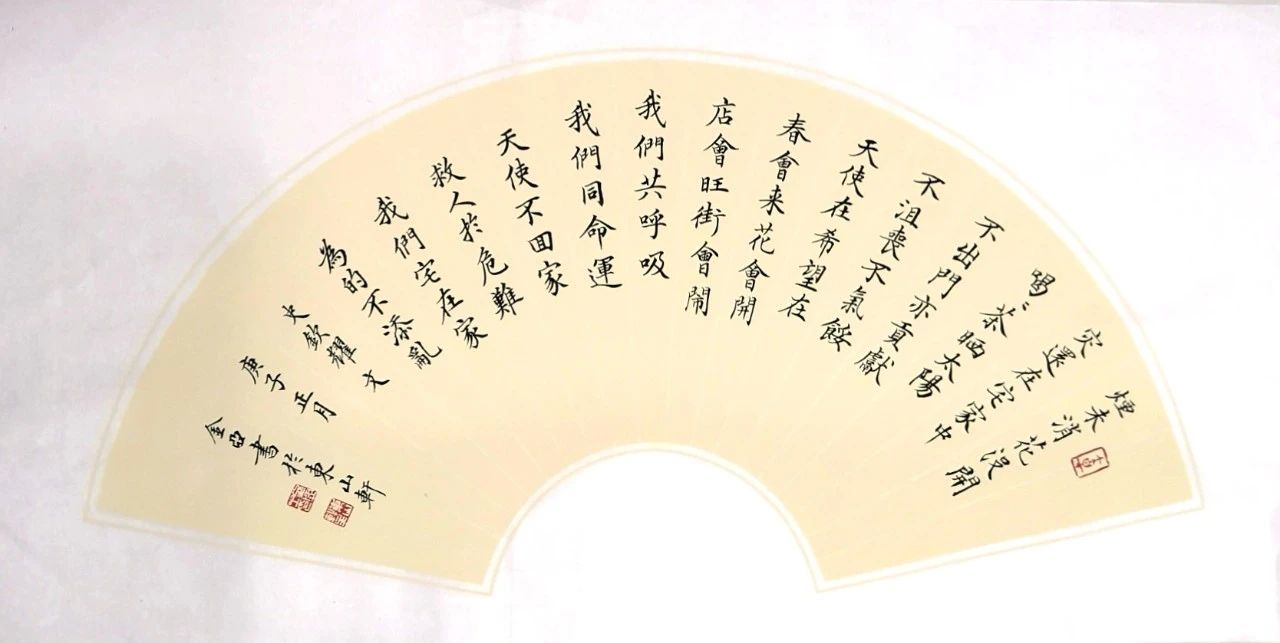 煙未消花没開
灾還在宅家中
喝茶晒太陽
不出門亦貢獻
不沮喪不氣餒
天使在希望在
春會来花會開
店會旺街會鬧
我們共呼吸
我們同命運
天使不囬家
救人於危難
我們宅在家
為的不添亂
史欽耀 文
庚子 正月
金書於東山軒